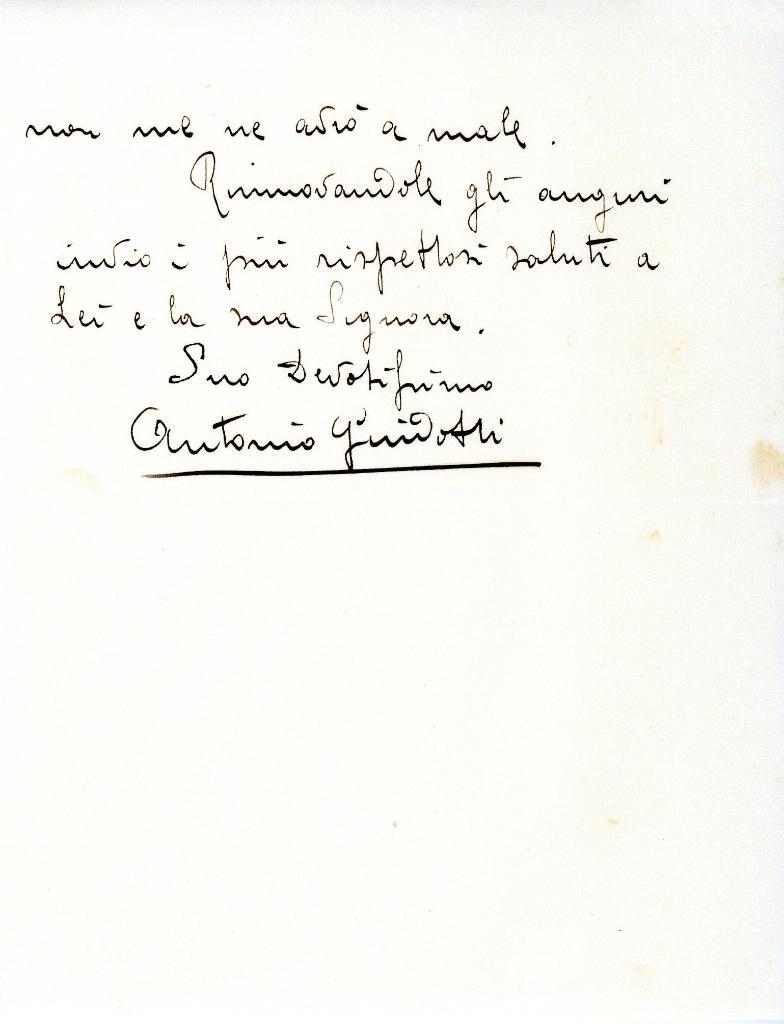 non me ne avrò a male.
Rinnovandole gli auguri
invio i più rispettosi saluti a
Lei e la sua Signora.
Suo Devotissimo
Antonio Guidotti